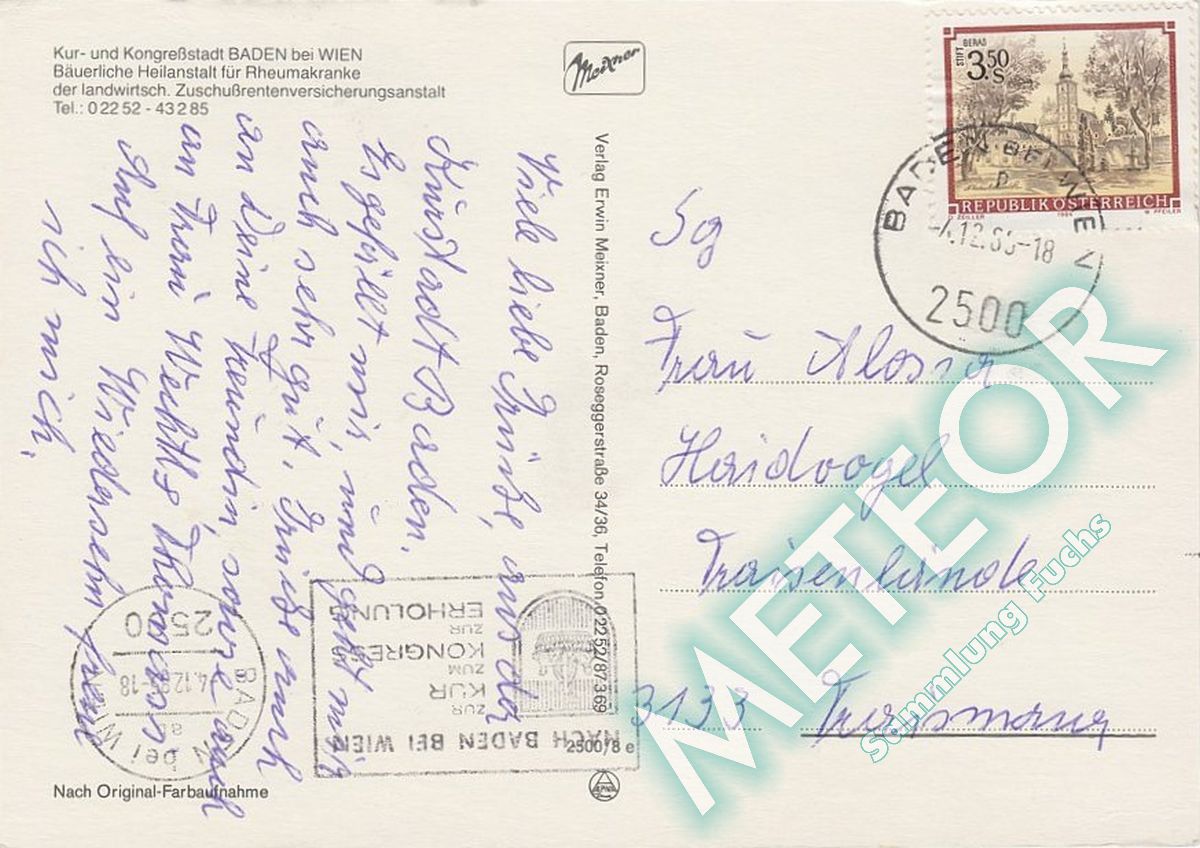 Kur- und Kongreßstadt BADEN bei WIEN
Bäuerliche Heilanstalt für Rheumakranke
der landwirtsch. Zuschußrentenversicherungsanstalt
Tel.: 0 22 52 - 43 2 85
Meixner
Viele liebe Grüße, aus der
Kurstadt Baden.
Es gefällt mir, und geht mir
auch sehr gut. Grüße auch
an Deine Freundin, sowie auch
an Frau
Auf ein Wiedersehn freu
ich mich,
Verlag Erwin Meixner, Baden, Roseggerstraße 34/36, Telefon 0 22 52/87 3 69
STIFT GERAS
3.50 S
REPUBLIK ÖSTERREICH
O. ZEILLER 1984 W. PFEILER
BADEN BEI WIEN
b
12.86-18
2500
Sg
Frau
Haidvogel
Traisenlände
3133 Traismauer
NACH BADEN BEI WIEN
ZUR
KUR
ZUM
KONGRE
ZUR
ERHOLUNG
2500 BADEN bei WIEN
a
2500/8 e
Nach Original-Farbaufnahme
METEOR
Sammlung Fuchs